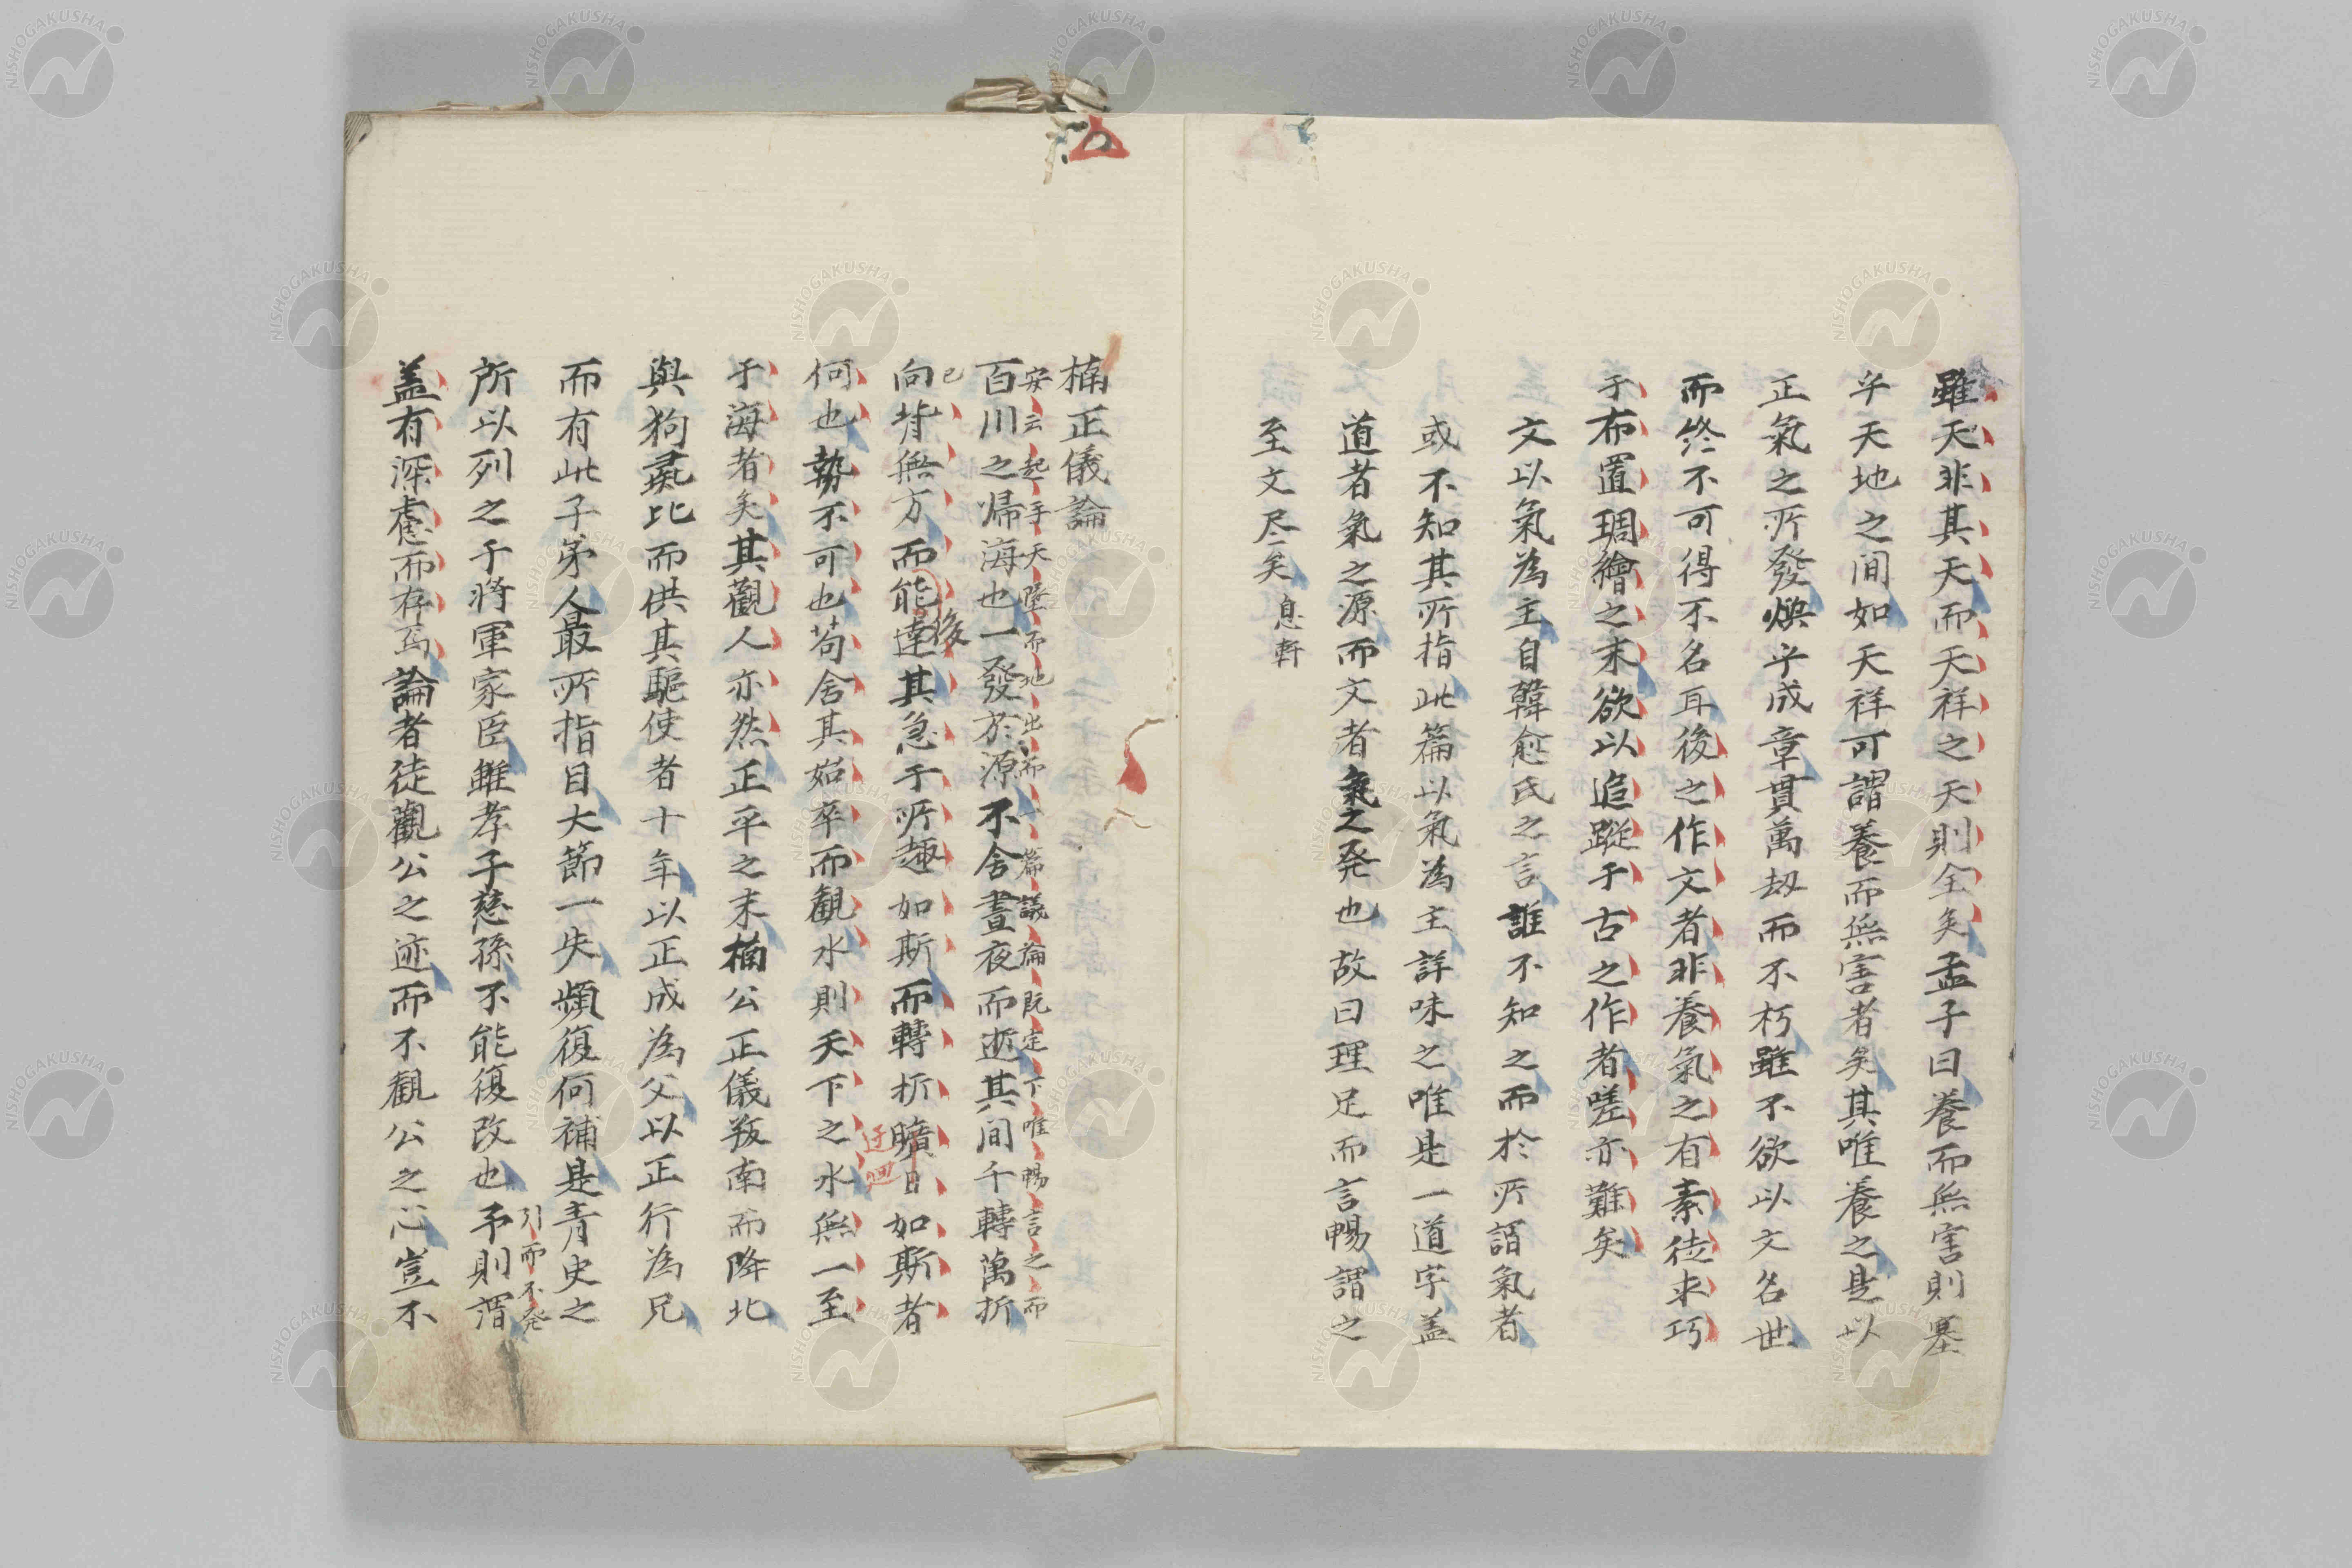 雖天非其天而天祥之天則全矣孟子曰養而無害則塞
乎天地之間如天祥可謂養而無害者矣其唯養之是以
正氣之所發煥乎成章貫萬劫而不朽雖不欲以文名世
而終不可得不名耳後之作文者非養氣之有素徒求巧
于布置琱繪之末欲以追蹤于古之作者嗟亦難矣
文以氣為主自韓愈氏之言誰不知之而於所謂氣者
或不知其所指此篇以氣為主詳味之唯是一道字盖
道者氣之源而文者氣之発也故曰理足而言暢謂之
至文尽矣 息軒
楠正儀論
安云起手天墜而地出而一篇議論既定下唯暢言之而
已
百川之帰海也一發於源不舍晝夜而逝其间千轉萬折
向背無方而能達其急于所趣如斯而轉折曠日如斯者
後
迂回
何也勢不可也苟舍其始卒而観水則天下之水無一至
于海者矣其觀人亦然正平之末楠公正儀叛南而降北
與狗彘比而供其驅使者十年以正成為父以正行為兄
而有此子弟人最所指目大節一失頻復何補是青史之
引而不発
所以列之于將軍家臣雖孝子慈孫不能復改也予則謂
盖有深慮而存焉論者徒觀公之迹而不觀公之心豈不
NISHOGAKUSHA